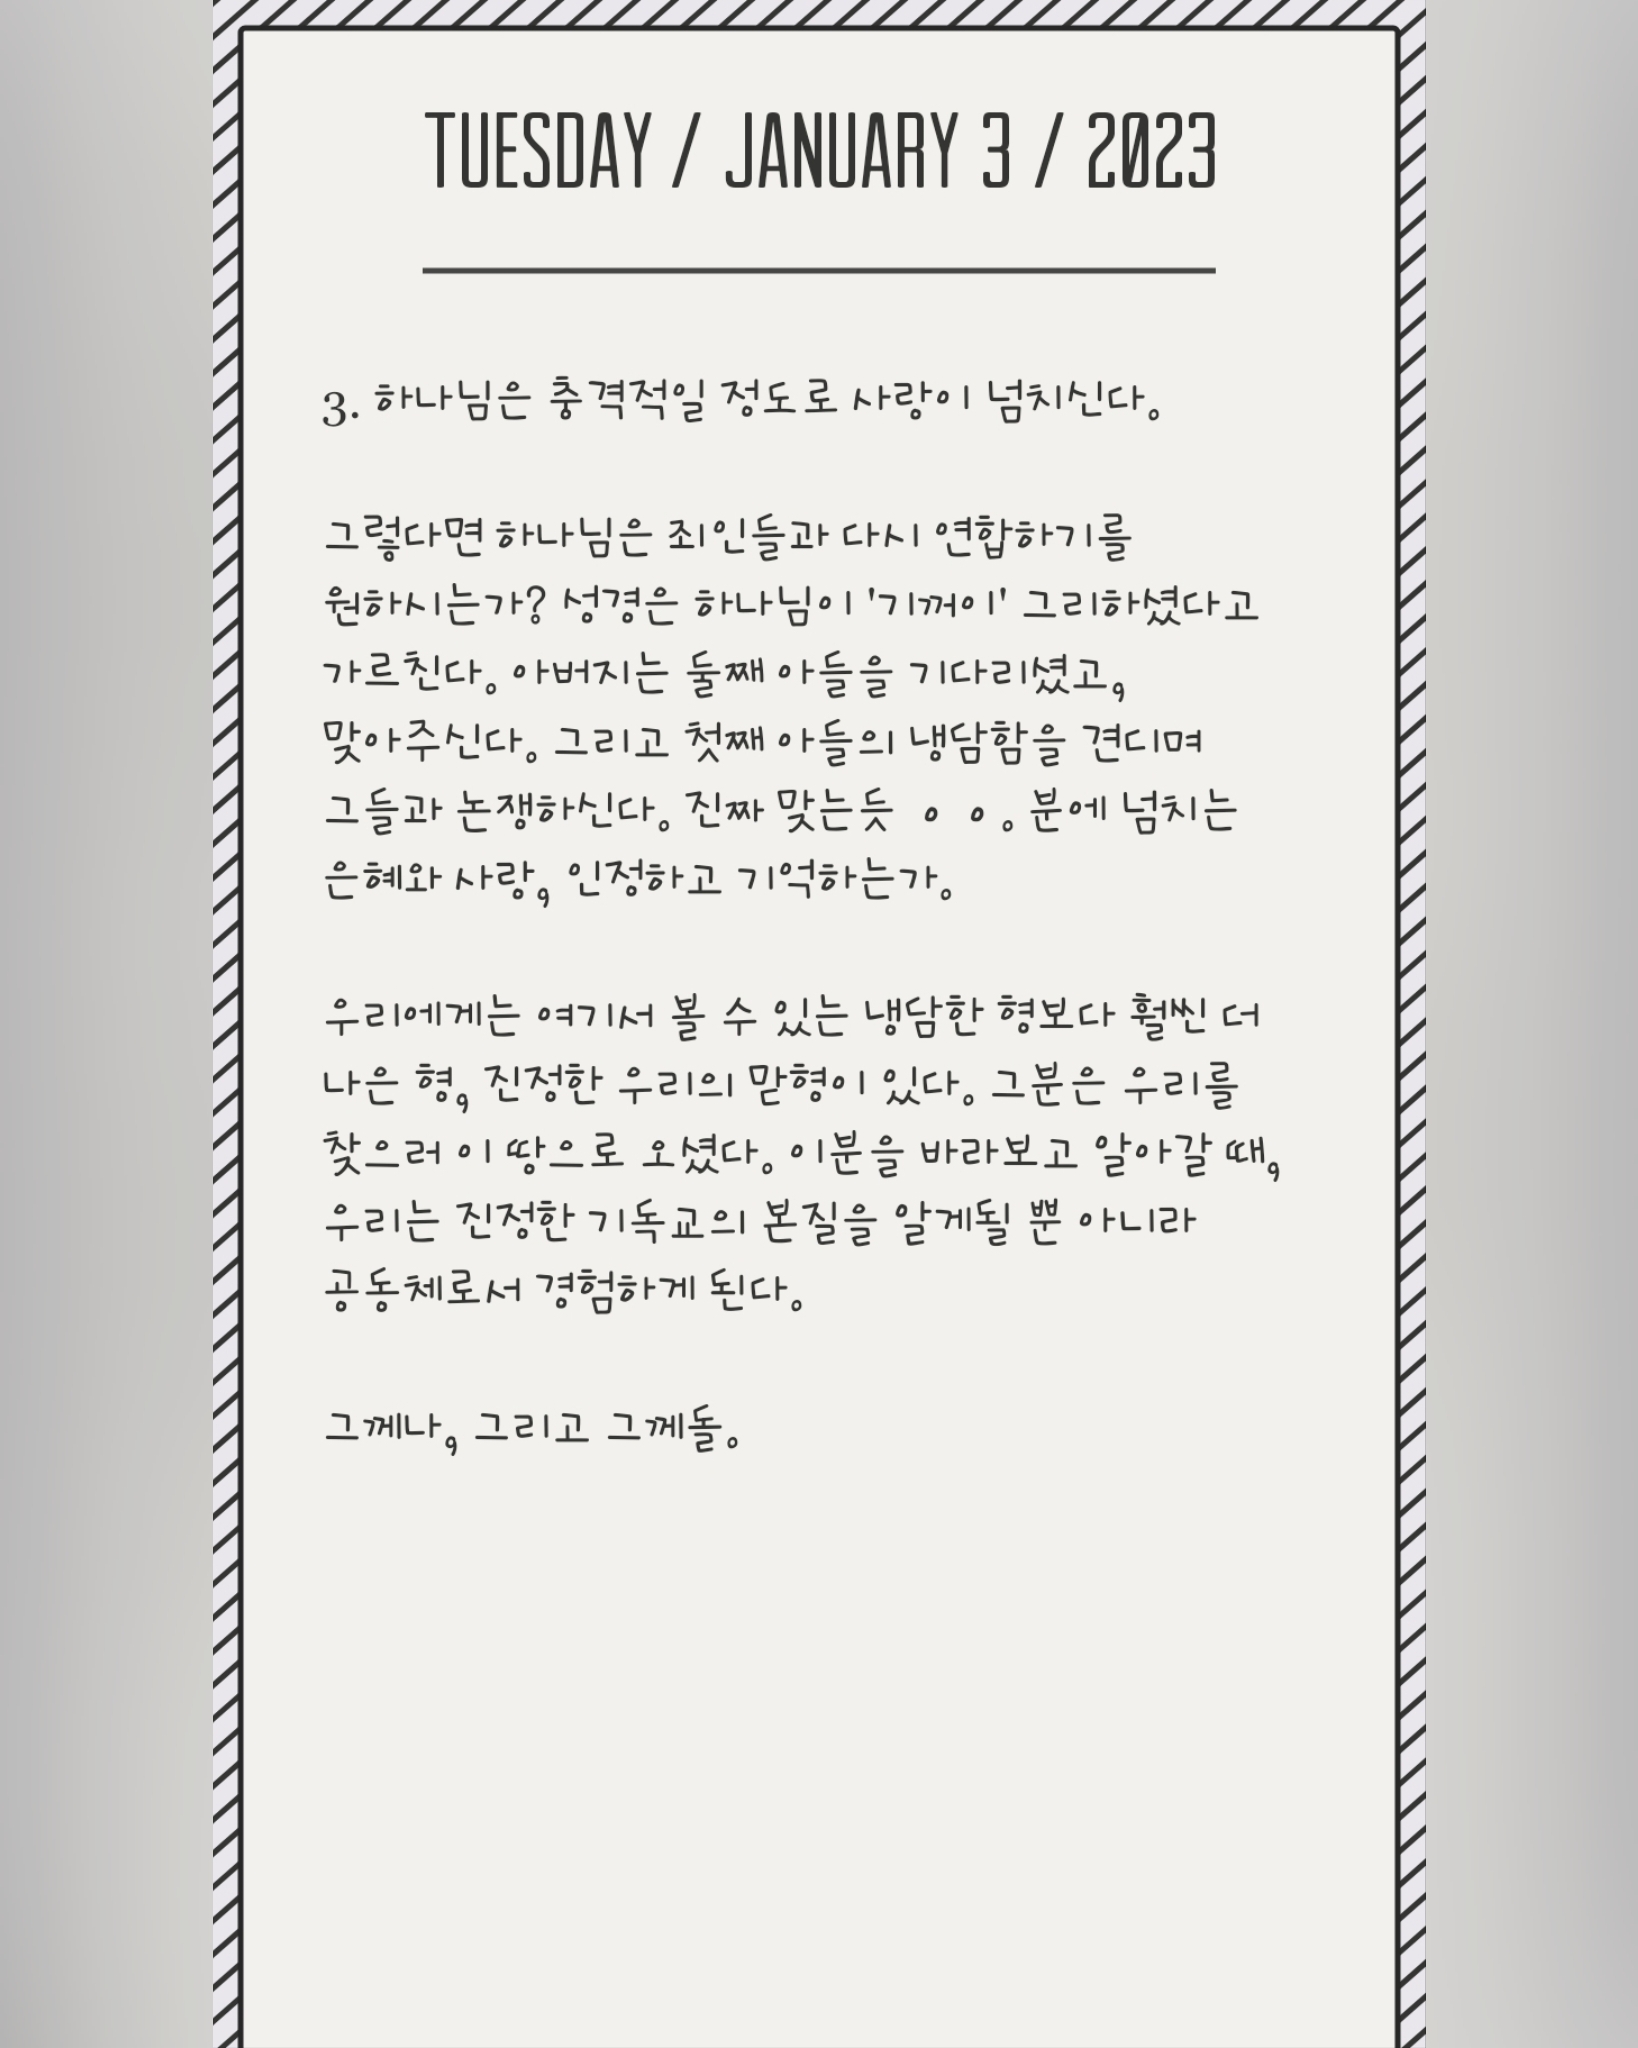 TUESDAY / JANUARY 3 / 2023
3. 하나님은 충격적일 정도로 사랑이 넘치신다.
그렇다면 하나님은 죄인들과 다시 연합하기를
원하시는가? 성경은 하나님이 '기꺼이' 그리하셨다고
가르친다. 아버지는 둘째 아들을 기다리셨고,
맞아주신다. 그리고 첫째 아들의 냉담함을 견디며
그들과 논쟁하신다. 진짜 맞는듯 。。. 분에 넘치는
은혜와 사랑, 인정하고 기억하는가.
우리에게는 여기서 볼 수 있는 냉담한 형보다 훨씬 더
나은 형, 진정한 우리의 맏형이 있다. 그분은 우리를
찾으러 이 땅으로 오셨다. 이분을 바라보고 알아갈 때,
우리는 진정한 기독교의 본질을 알게될 뿐 아니라
공동체로서 경험하게 된다.
그께나, 그리고 그께돌.